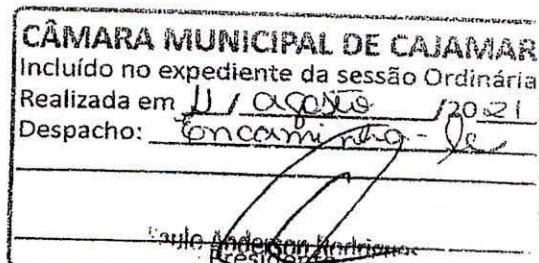 CÂMARA MUNICIPAL DE CAJAMAR
Incluído no expediente da sessão Ordinária
Realizada em 11 / agosto /2021
Despacho: Encaminha-se
Paulo Anderson Rodrigues
Presidente